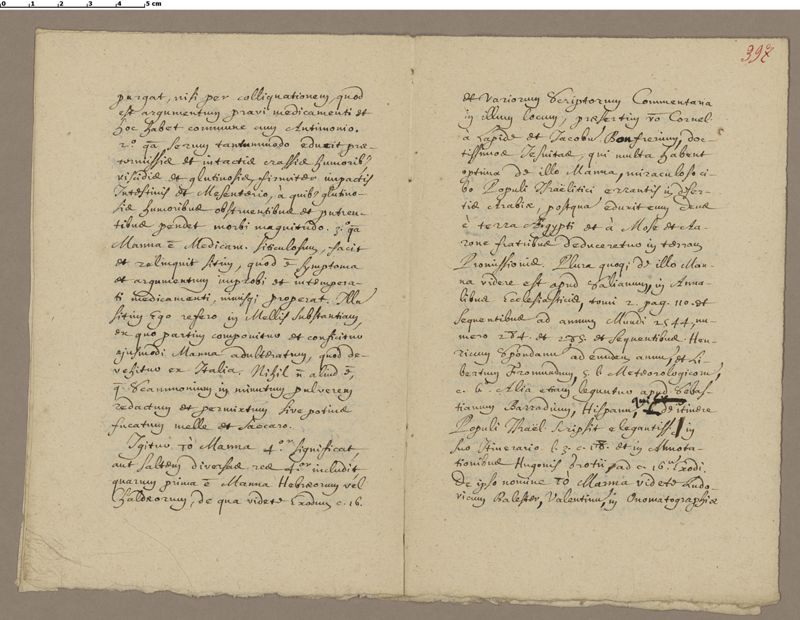 0 1 2 3 4 5 cm
397
purgat, nisi per colliquationem, quod
est argumentum pravi medicamenti et
hoc habet commune cum Antimonio.
2.º qa serum tantummodo educit præ-
termissis et intactis crassis humoribq
viscidis et glutinosis, firmiter impactis
Intestinis et Mesenterio, à quibq glutino-
sis humoribus obstruentibus et putren-
tibus pendet morbi magnitudo. 3.º qa
Manna ē Medicam. siticulosum, facit
et relinquit sitim, quod ē symptoma
et argumentum improbi et intempera-
ti medicamenti, nimisqj properat. Illā
sitim Ego refero in Mellis substantiam,
ex quo partim componitur et conficitur
ejusmodi Manna adulteratum, quod de-
vehitur ex Italia. Nihil n. aliud ē,
q̄ Scammonium in minutum pulverem
redactum et permixtum sive potius
fucatum melle et saccaro.
Igitur τὸ Manna 4.or significat,
aut saltem diversas res 4.or includit
quarum prima ē Manna Hebræorum vel
Chaldæorum, de qua videte Exodum c. 16.
et Variorum Scriptorum Commentaria
in illum locum, præsertim vo Cornel.
à Lapide et Jacobū Bonfrerium, doc-
tissimos Jesuitas, qui multa habent
optima de illo Manna, miraculoso ci-
bo Populi Israëlitici errantis in deser-
tis Arabiæ, postquā eduxit eum Deus
è terra Ægypti et à Mose et Aa-
rone fratribus deduceretur in terram
Promissionis. Plura quoqj de illo Man-
na videre est apud Salianum, in Anna-
libus Ecclesiasticis, tomi 2. pag. 110. et
sequentibus ad annum Mundi 2544, nu-
mero 284. et 285. et sequentibus. Hen-
ricum Spondanū ad eundem annū, et Li-
bertum Fromundum, l. 5 Meteorologicorū,
c. 6. Alia etiam leguntur apud Sebas-
tianum Barradium, Hispanū, qui de itinere
Populi Israël scripsit elegantiss. in
suo Itinerario l. 5. c. 18. et in Annota-
tionibus Hugonis Grotii ad c. 16. Exodi.
De ipso nomine τὸ Manna videte Ludo-
vicum Balester, Valentinū, in Onomatographiæ